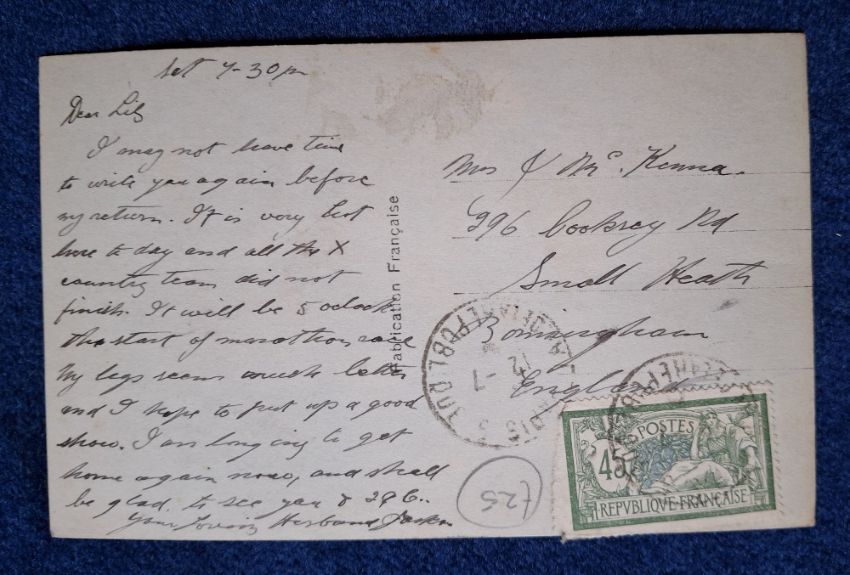 Sat 7-30pm
Dear Lily
I may not have time
to write you again before
my return. It is very hot
here to day and all the X
country team did not
finish. It will be 5 oclock
the start of marathon race
My legs seem much better
and I hope to put up a good
show. I am longing to get
home again now, and shall
be glad to see you & 296.
Your loving Husband
Fabrication Française
Mrs J Mc. Kenna.
296 Rd
Small Heath
Birmingham
England
12 -7
£25
45
POSTES
REPVBLIQVE FRANÇAISE